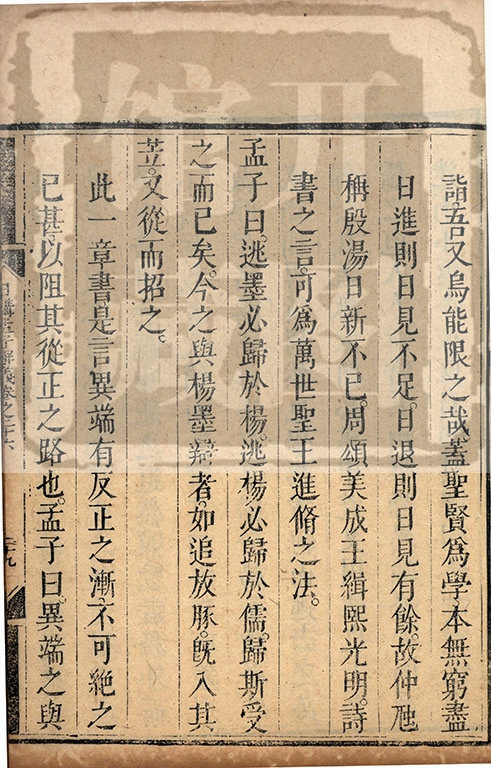 詣。吾又烏能限之哉。蓋聖賢爲學本無窮盡
日進則日見不足。日退則日見有餘。故仲虺
稱殷湯日新不已。周頌美成王緝熙光明。詩
書之言。可爲萬世聖王進脩之法。
孟子曰。逃墨必歸於楊。逃楊必歸於儒。歸斯受
之而已矣。今之與楊墨辯者。如追放豚。旣入其
苙。又從而招之。
此一章書是言異端有反正之漸。不可絶之
已甚。以阻其從正之路也。孟子曰。異端之與
日講孟子解義卷之二十六